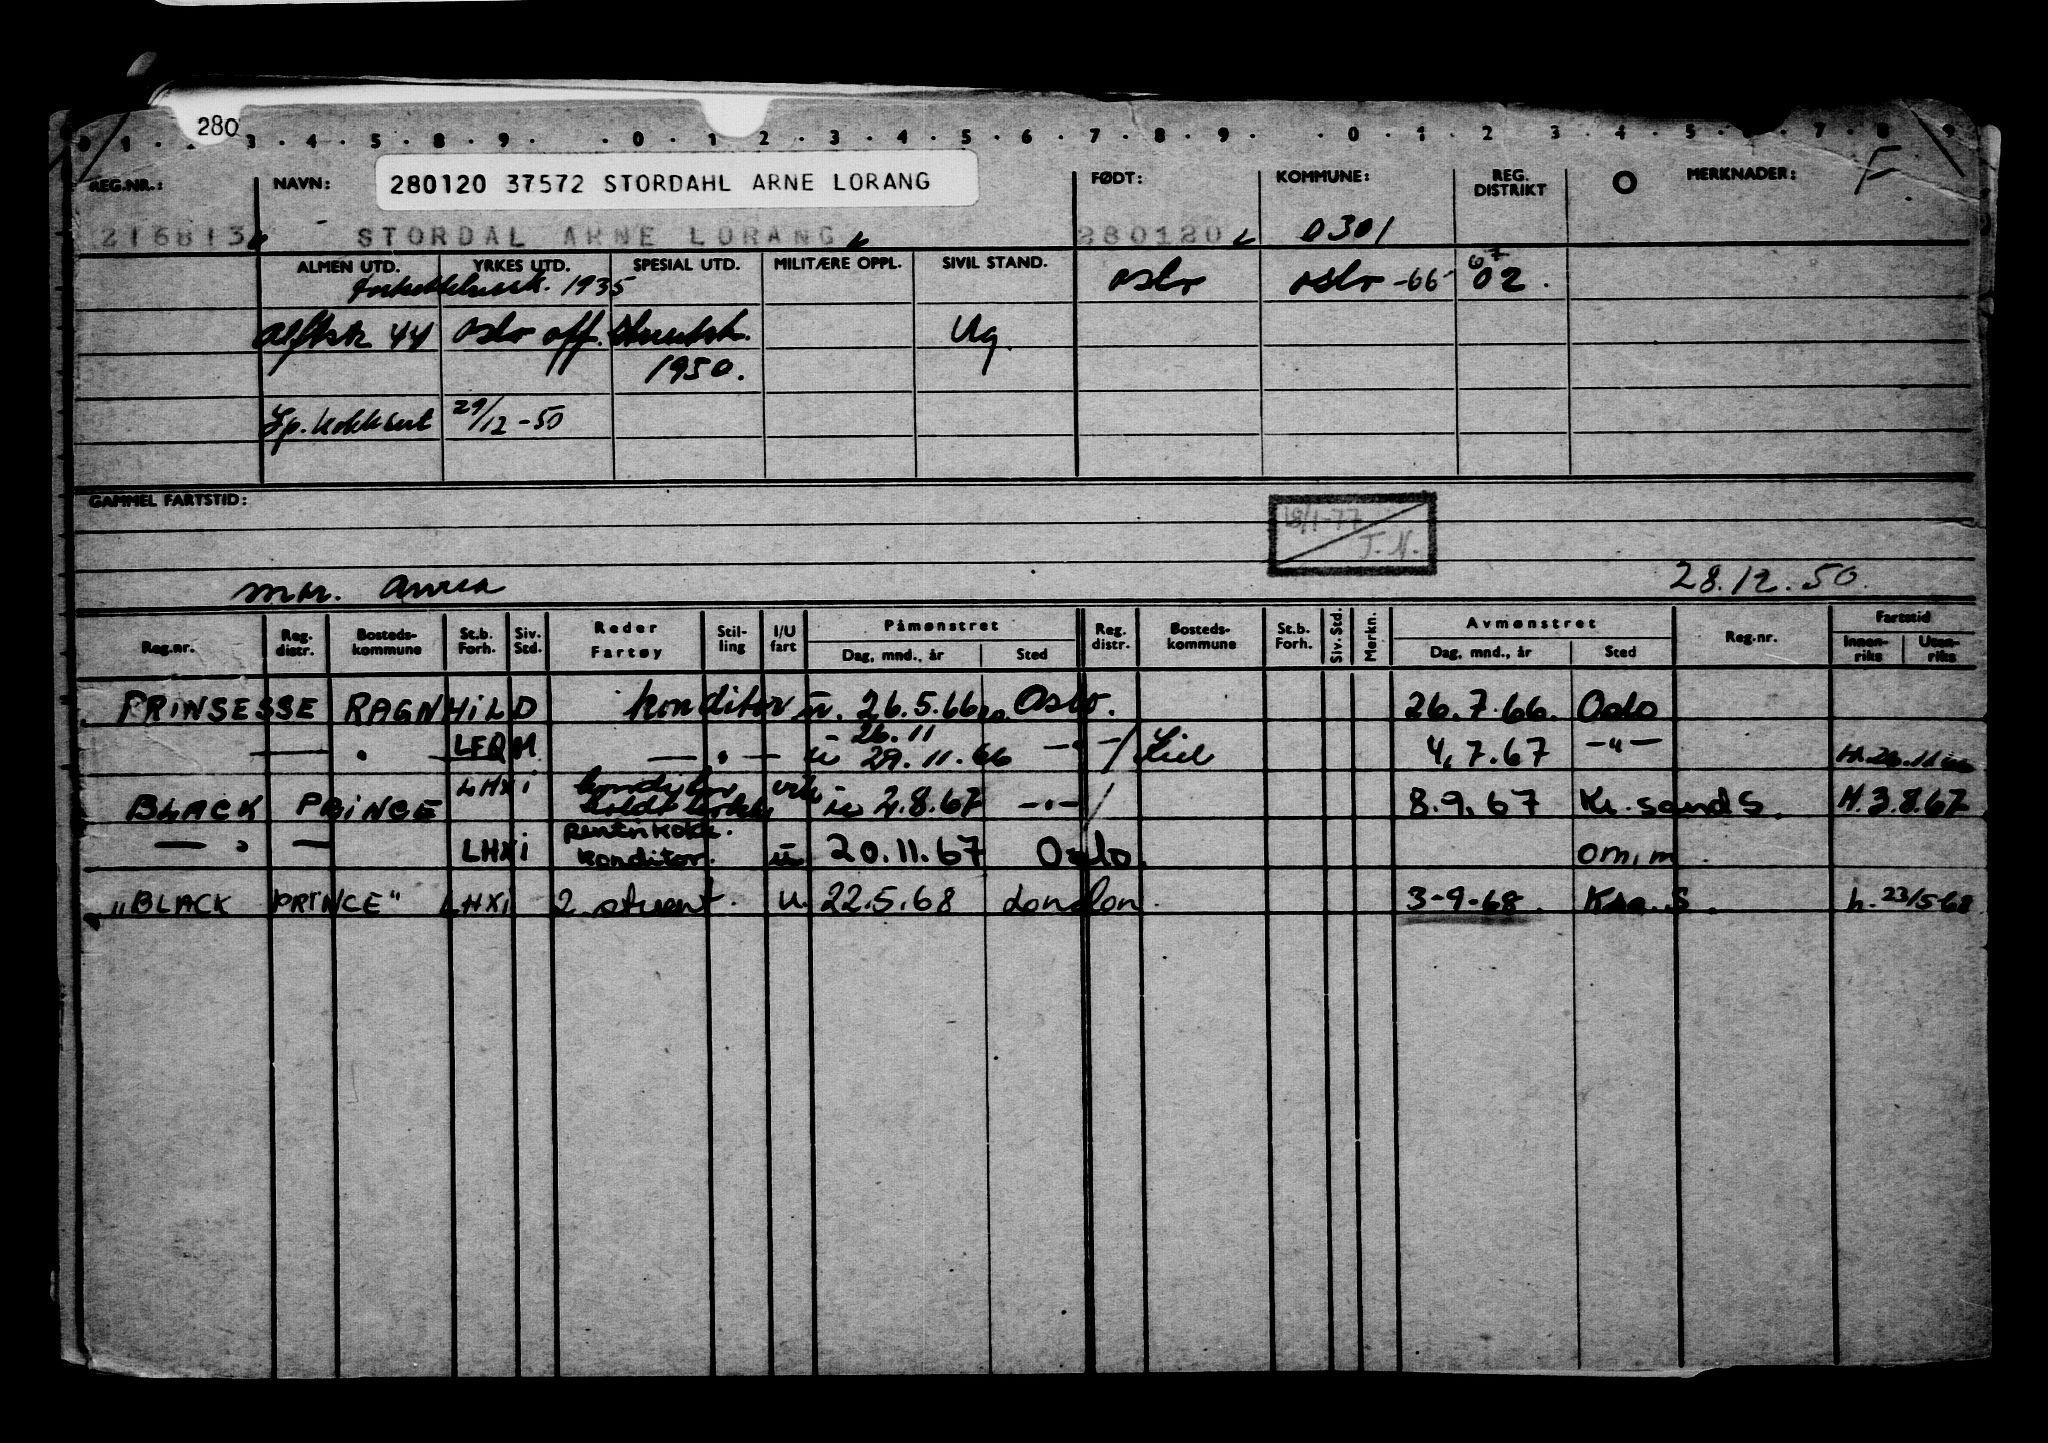 280
0 1 . 2 . 3 . 4 . 5 . 8 . 9 . . 0 . 1 . 2 . 3 . 4 . 5 . 6 . 7 . 8 . 9 . . 0 . 1 . 2 . 3 . 4 . 5 . 6 . 7 . 8 . 9
REG.NR.: NAVN: 280120 37572 STORDAHL ARNE LORANG FØDT: KOMMUNE: REG. DISTRIKT O MERKNADER: F
216813 STORDAL ARNE LORANG 280120 0301
ALMEN UTD. YRKES UTD. SPESIAL UTD. MILITÆRE OPPL. SIVIL STAND. Oslo Oslo -66 67 02.
1935
44 Oslo off. Ug.
1950.
29/12 -50
GAMMEL FARTSTID:
18/1-77
J.N.
28.12.50.
Reg.nr. Reg. distr. Bosteds-kommune St.b. Forh. Siv. Std. Reder Fartøy Stil-ling I/U fart Påmønstret Dag, mnd., år Sted Reg. distr. Bosteds-kommune St.b. Forh. Siv. Std. Merkn. Avmønstret Dag, mnd., år Sted Reg.nr. Fartstid Innen-riks Uten-riks
PRINSESSE RAGNHILD konditor u. 26.5.66 Oslo. 26.7.66. Oslo
— . — LEQM — . — 26.11 29.11.66 — . — / 4.7.67 — " —
BLACK PRINCE LHXI u 2.8.67 — . — / 8.9.67 Kr. sand S. H. 3.8.67
— . — LHXI konditor. u 20.11.67 Oslo. om.m.
"BLACK PRINCE" LHXI 2. stuert. u. 22.5.68 London. 3-9-68. Kra. S. h. 23/5-68